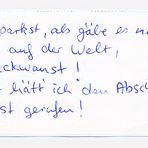 parkst, als gäbe es n
auf der Welt,
eckwanst!
hätt' ich den Absc
st gerufen!